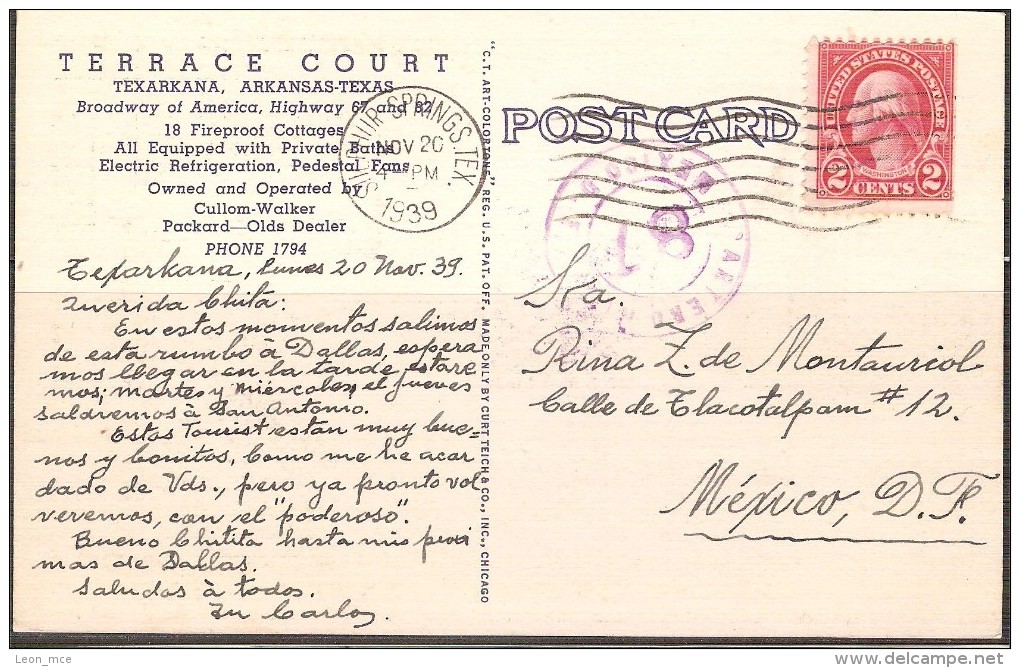 TERRACE COURT
TEXARKANA, ARKANSAS-TEXAS
Broadway of America, Highway 67 and 82
18 Fireproof Cottages
All Equipped with Private Baths
Electric Refrigeration, Pedestal Fans
Owned and Operated by
Cullom-Walker
Packard—Olds Dealer
PHONE 1794
SULPHUR SPRINGS, TEX.
NOV 20
4 PM
1939
Texarkana, Lunes 20 Nov. 39.
Querida Chita:
En estos momentos salimos
de esta rumbo à Dallas, espera
mos llegar en la tarde estare
mos; martes y miércoles, el jueves
saldremos à San Antonio.
Estos Tourist estan muy bue=
nos y bonitos, Como me he acor
dado de Vds., pero ya pronto vol
veremos, con el "poderoso".
Bueno Chitita hasta mis proxi
mas de Dallas.
Saludos à todos.
Tu Carlos.
"C.T. ART-COLORTONE" REG. U.S. PAT. OFF. MADE ONLY BY CURT TEICH & CO., INC., CHICAGO
POST CARD
UNITED STATES POSTAGE
WASHINGTON
2 CENTS 2
CARTERO
18
Sra.
Rina Z. de Montauriol
Calle de Tlacotalpam # 12.
México, D.F.
Leon_mce
delcampe.net